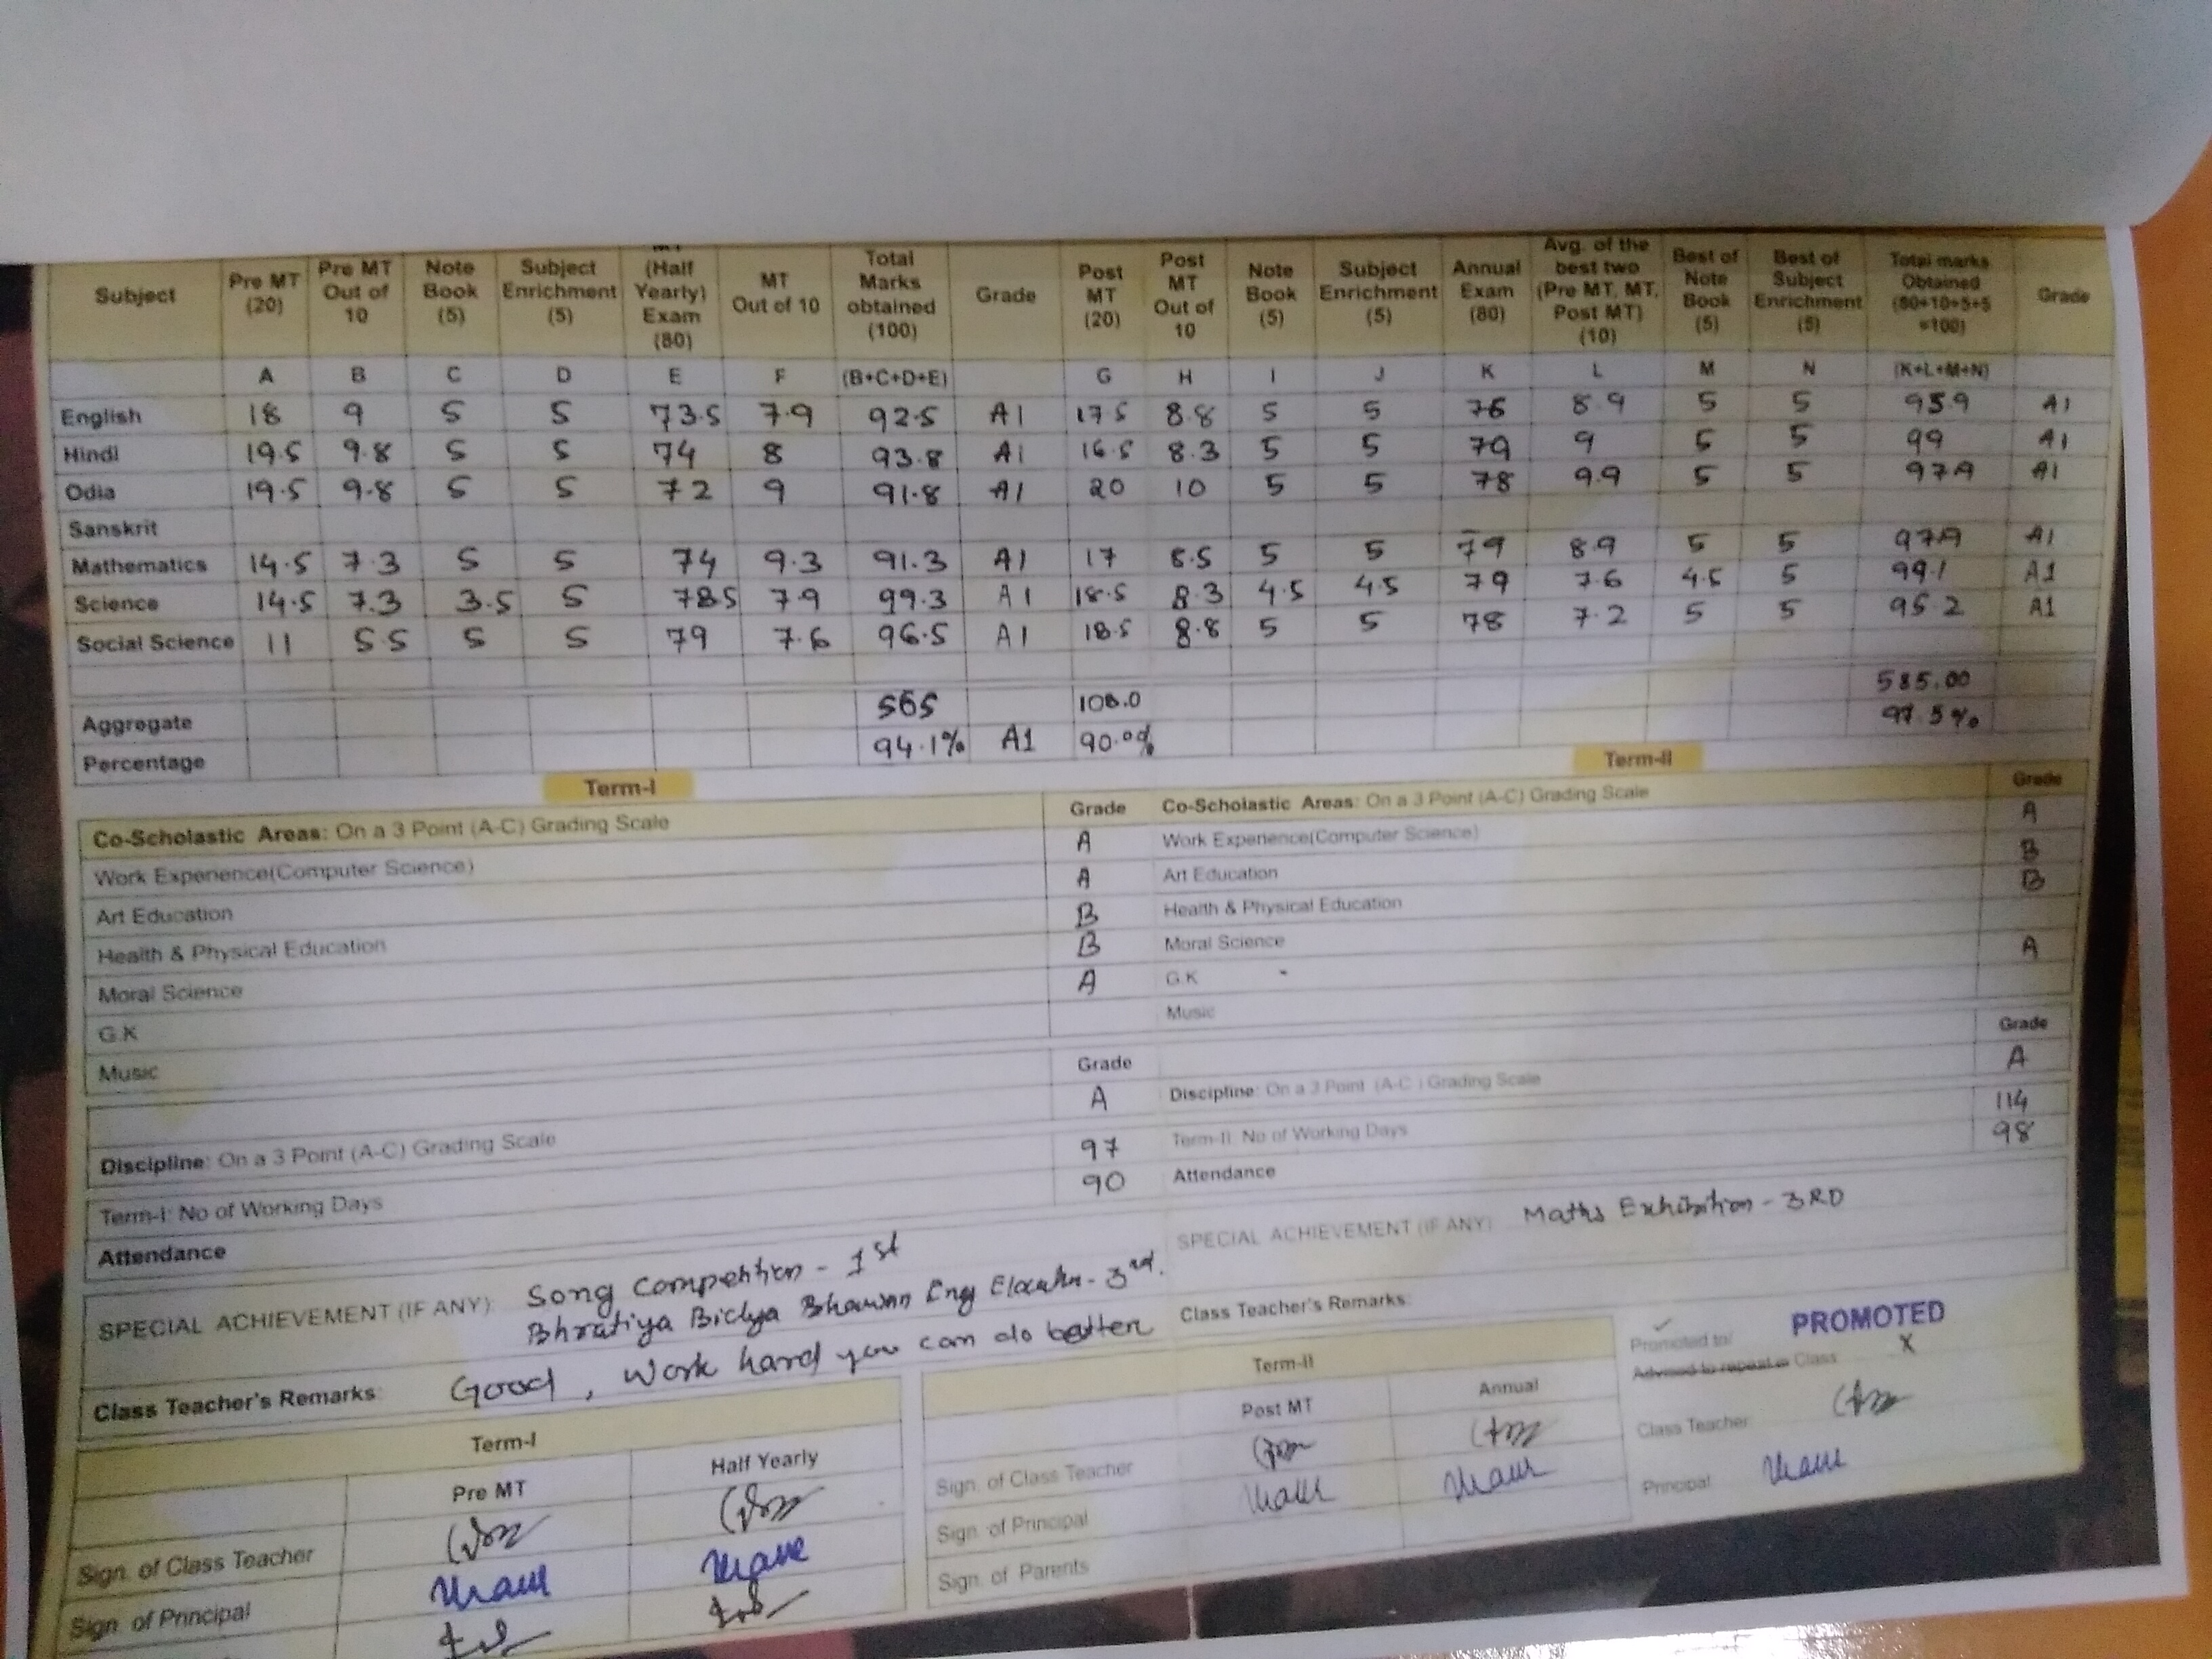 Subject Pre MT (20) Pre MT Out of 10 Note Book (5) Subject Enrichment (5) (Half Yearly) Exam (80) MT Out of 10 Total Marks obtained (100) Grade Post MT (20) Post MT Out of 10 Note Book (5) Subject Enrichment (5) Annual Exam (80) Avg. of the best two (Pre MT, MT, Post MT) (10) Best of Note Book (5) Best of Subject Enrichment (5) Total marks Obtained (80+10+5+5 =100) Grade
A B C D E F (B+C+D+E) G H I J K L M N (K+L+M+N)
English 18 9 5 5 73.5 7.9 92.5 A1 17.5 8.8 5 5 76 8.9 5 5 95.9 A1
Hindi 19.5 9.8 5 5 74 8 93.8 A1 16.5 8.3 5 5 79 9 5 5 99 A1
Odia 19.5 9.8 5 5 72 9 91.8 A1 20 10 5 5 78 9.9 5 5 97.9 A1
Sanskrit
Mathematics 14.5 7.3 5 5 74 9.3 91.3 A1 17 8.5 5 5 79 8.9 5 5 97.9 A1
Science 14.5 7.3 3.5 5 78.5 7.9 99.3 A1 18.5 8.3 4.5 4.5 79 7.6 4.5 5 99.1 A1
Social Science 11 5.5 5 5 79 7.6 96.5 A1 18.5 8.8 5 5 78 7.2 5 5 95.2 A1
Aggregate 565 108.0 585.00
Percentage 94.1% A1 90.0% 97.5%
Term-I
Co-Scholastic Areas: On a 3 Point (A-C) Grading Scale Grade
Work Experience(Computer Science) A
Art Education A
Health & Physical Education B
Moral Science B
G.K A
Music
Grade
Discipline: On a 3 Point (A-C) Grading Scale A
Term-I: No of Working Days 97
Attendance 90
SPECIAL ACHIEVEMENT (IF ANY): Song Competition - 1st
Bhratiya Bidya Bhawan Eng - 3rd.
Class Teacher's Remarks: Good, Work hard you can do better
Term-I
Pre MT Half Yearly
Sign. of Class Teacher
Sign. of Principal
Term-II
Co-Scholastic Areas: On a 3 Point (A-C) Grading Scale Grade
Work Experience(Computer Science) A
Art Education B
Health & Physical Education B
Moral Science
G.K A
Music
Grade
Discipline: On a 3 Point (A-C) Grading Scale A
Term-II: No of Working Days 114
Attendance 98
SPECIAL ACHIEVEMENT (IF ANY): Maths Exhibition - 3RD
Class Teacher's Remarks:
Term-II
Post MT Annual
Sign. of Class Teacher
Sign. of Principal
Sign. of Parents
Promoted to/ PROMOTED
Advised to repeat in Class X
Class Teacher
Principal